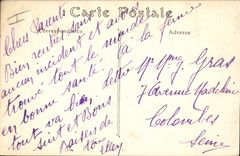 Carte Postale
Correspondance
Adresse
Chers Parents
Bien rentrés sans
aucun incident et avons
trouvé tout le monde
en bonne santé à la ferme
tout va bien
suit et Bons
Baisers de
tous
Mr Mme Gras
7 Avenue Madeleine
Colombes
Seine